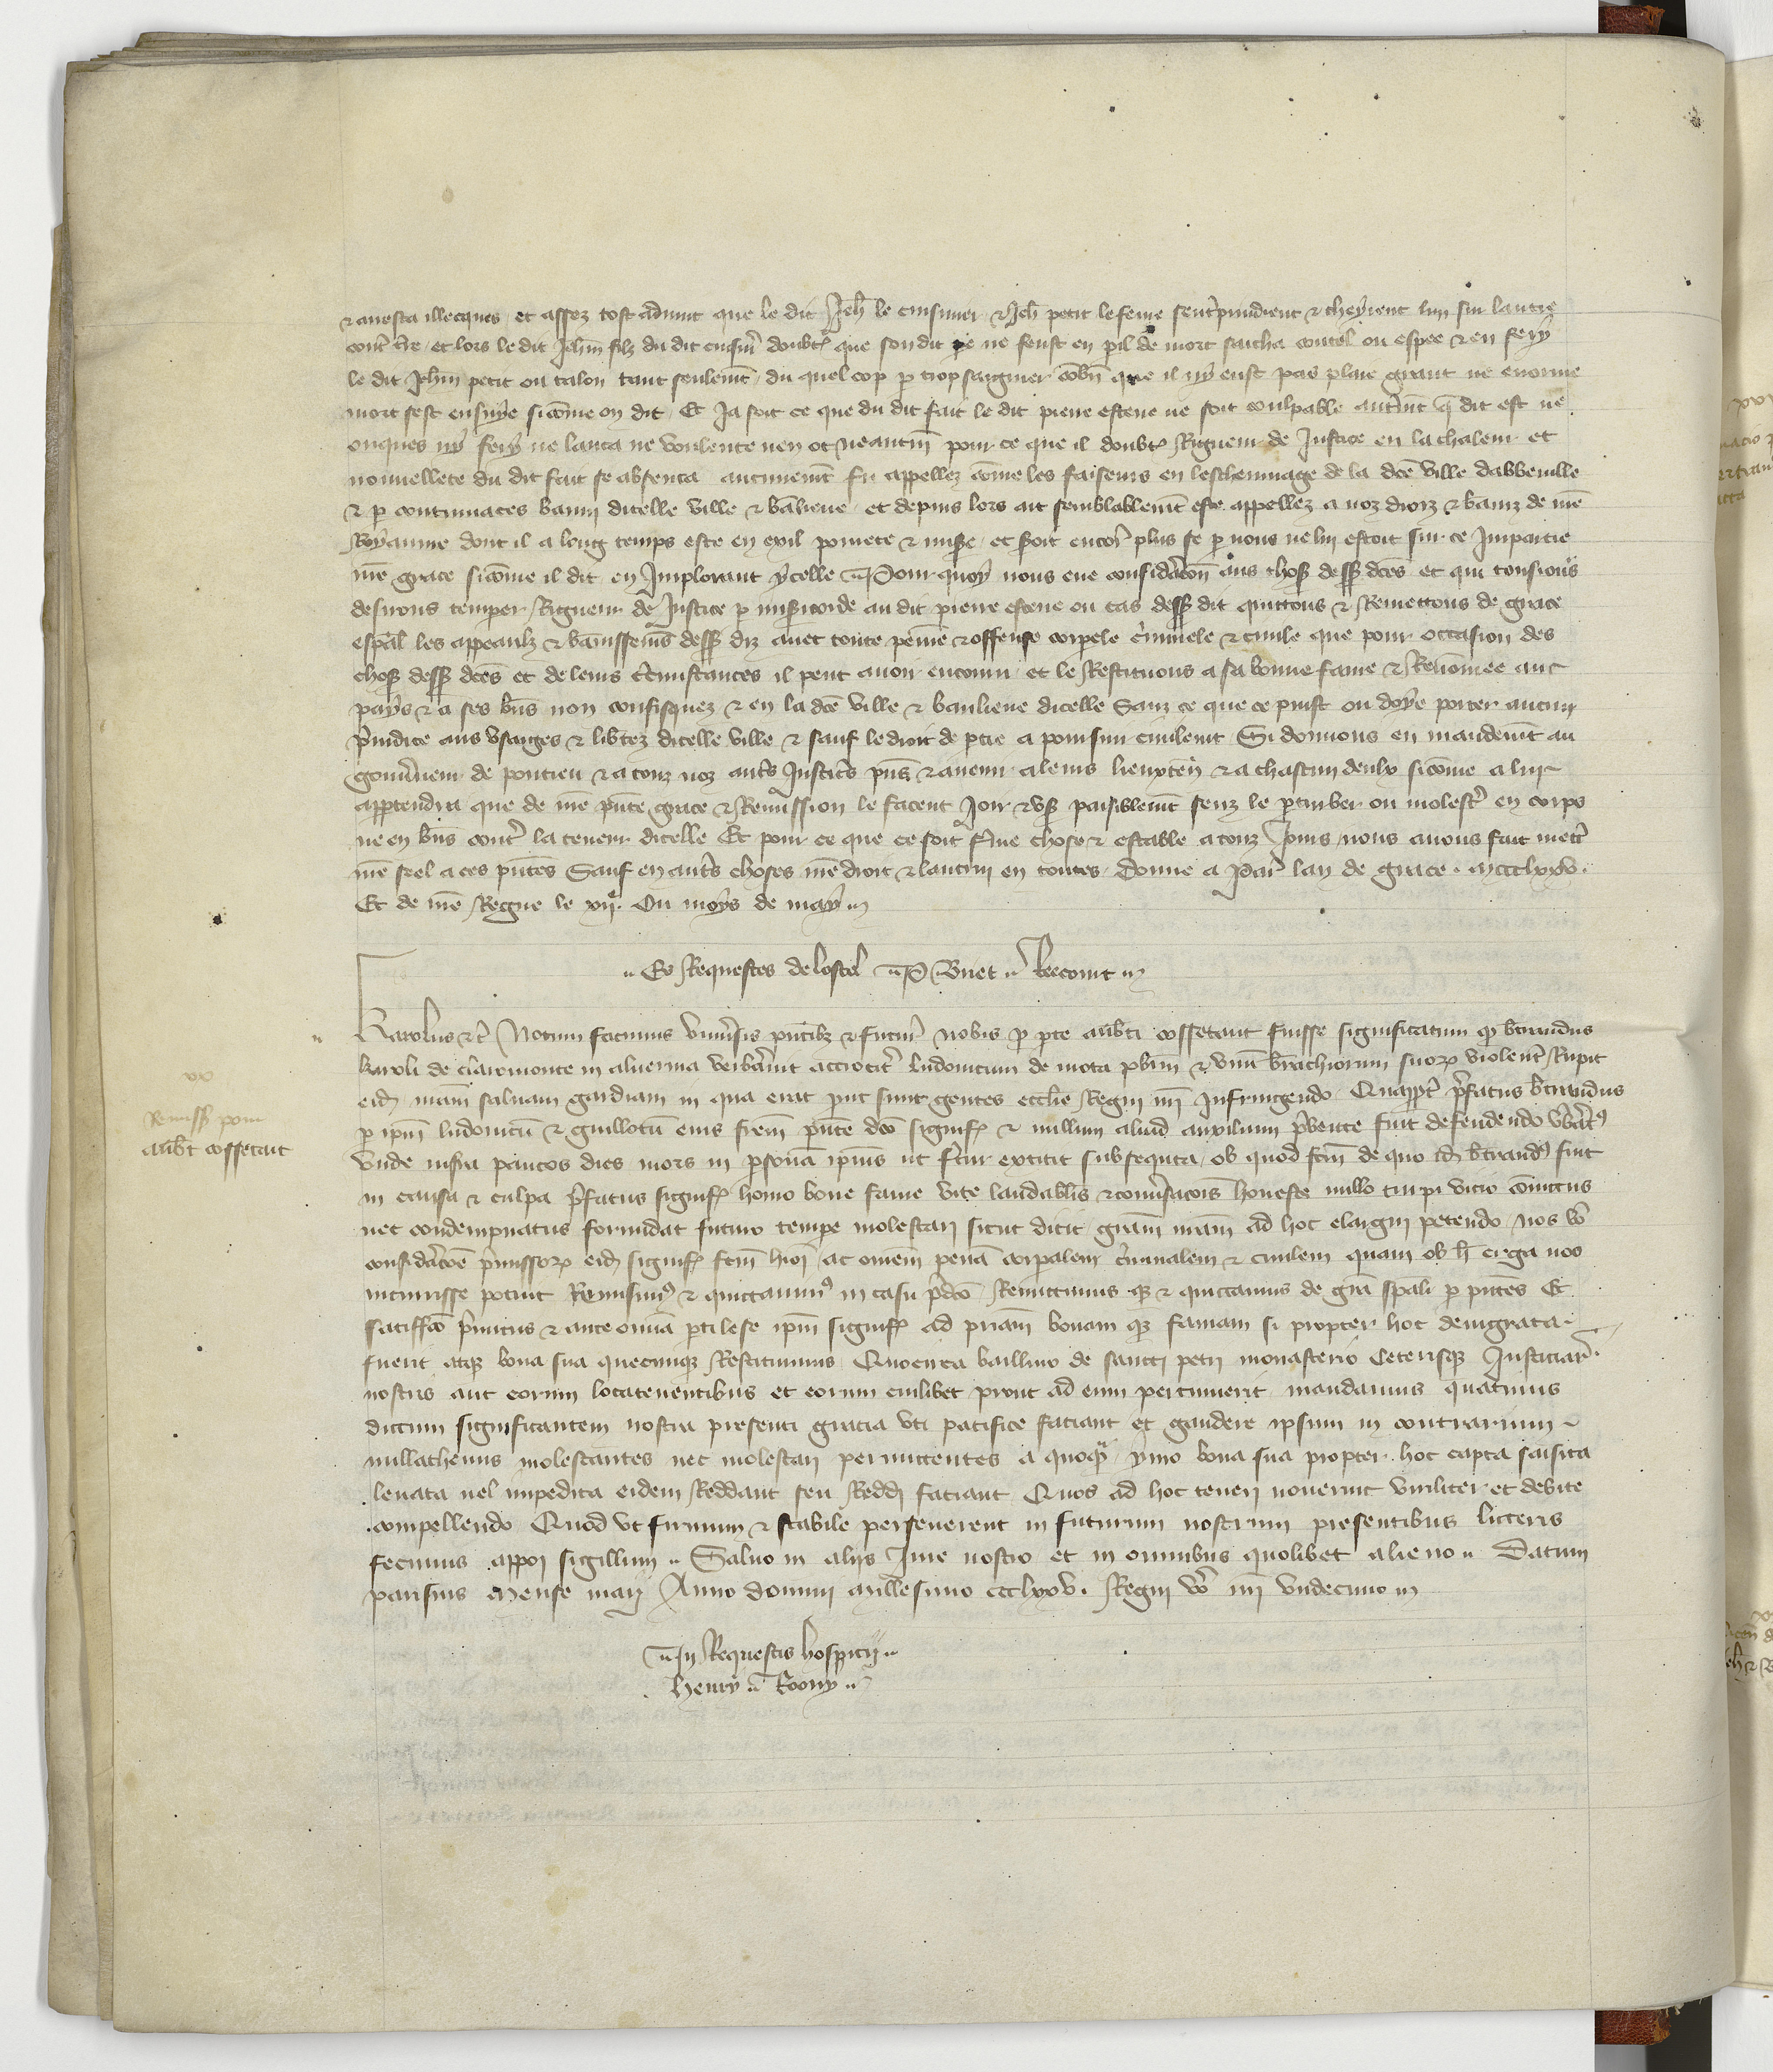 & aresta illecques et assez tost advint que le dit Jeh le cuisinier & Jeh petit le ferure sentrprindrent & cheyrent lun sur lautre
contr tre et lors le dit Jehin filz du dit cuisinr doubt que son dit pe ne feust en pil de mort sacha coutel ou espee & en fery
le dit Jehin petit ou talon tant seulemt du quel cop p trop saigner combn que il ny eust pas plaie grant ne enorme
mort sest ensuye sicome on dit Et Ja soit ce que du dit fait le dit pierre estene ne soit coulpable autrmt q dit est ne
onques ny fery ne lanca ne voulente nen ot neantm pour ce que il doubt Rigueur de Justice en la chaleur et
nouvellete du dit fait se absenta aucunemt fu appellez come les faiseurs en leschevinage de la dce ville dabbeville
& p contumaces banny dicelle ville & banlieue et depuis lors ait semblablemt este appellez a noz droiz & baniz de nre
Royaume dont il a long temps este en exil povrete & misere et seroit encor plus se p nous ne luy estoit sur ce Impartie
nre grace sicome il dit en Implorant ycelle Pour quoy nous eue consideracon aus choses desss dces et qui tousjours
desirons temperer Rigueur de Justice p misericorde au dit pierre estene ou cas desss dit quittons & Remettons de grace
espal les appeaulx & banissems desss diz avec toute peine & offense corpele criminele & civile que pour occasion des
choses desss dces et de leurs circunstances il peut avoir encouru et le Restituons a sa bonne fame & Renomee au
pays & a ses bns non confisquez & en la dce ville & banlieue dicelle Sanz ce que ce puist ou doye porter aucun
prjudice aus usaiges & libtez dicelle ville & sauf le droit de ptie a poursuir civilemt Si donnons en mandemt au
gouvrneur de pontieu & a touz noz autrs Justicrs prns & avenir a leurs lieuxten & a chascun deulx sicome a luy
apprtendra que de nre prnte grace & Remission le facent Joir & user paisiblemt senz le ptruber ou molestr en corps
ne en bns contr la teneur dicelle Et pour ce que ce soit ferme chose & estable a touz Jours nous avons fait mettr
nre seel a ces prntes Sauf en autrs choses nre droit & lautruy en toutes Donne a Paris lan de grace mccclxxv.
Et de nre Regne le xije. Ou moys de may
Es Requestes de lostel P Buet
Karolus &c Notum facimus universis prntibz & futuris nobis p pte aubti cossetaut fuisse significatum qd btrandus
karoli de claromonte in alvernia verberavit atrociter ludovicum de mota pbrm & unu brachiorum suorum violentr Rupit
eid nram salvam gardiam in qua erat prout sunt gentes ecclie Regni nri Infringendo Quappt prfatus btrandus
p ipm ludovicu & guillotu eius frem prnte dco signif & nullum aliud auxilium prbente fuit defendendo vberatus
unde infra paucos dies mors in psona ipius ut fertur extitit subsequta ob quod fcm de quo id btrandus fuit
in causa & culpa prfatus signif homo bone fame vite laudabilis & conversacois honeste nullo turpi vicio convictus
nec condempnatus formidat futuro tempe molestari sicut dicit gram nram ad hoc elargiri petendo Nos vero
consideracoe premissor eid signif fcm hmoi ac omem pena corpalem criminalem & civilem quam ob h erga nos
incurrisse potuit Remisimus & quictavimus in casu prdco Remittimusque & quictamus de gra spali p prntes Et
satisffco primitus & ante omia pti lese ipm signif ad priam bonamque famam si propter hoc denigrata
fuerit atque bona sua quecunque Restituimus Quocirca baillivo de sancti petri monasterio Ceterisque Justiciar
nostris aut eorum locatenentibus et eorum cuilibet prout ad eum pertinuerit mandamus quatinus
dictum significantem nostra presenti gracia uti pacifice faciant et gaudere ipsum in contrarium
nullathenus molestantes nec molestari permittentes a quoqua ymo bona sua propter hoc capta saisita
levata vel impedita eidem Reddant seu Reddi faciant Quos ad hoc teneri noverint viriliter et debite
compellendo Quod ut firmum & stabile perseveret in futurum nostrum presentibus litteris
fecimus apponi sigillum Salvo in aliis Jure nostro et in omnibus quolibet alieno Datum
parisius mense maii Anno domini millesimo ccclxxv. Regni vero nri undecimo
xx
Remiss pour
aubt cossetaut
In Requestis hospicii
Henry